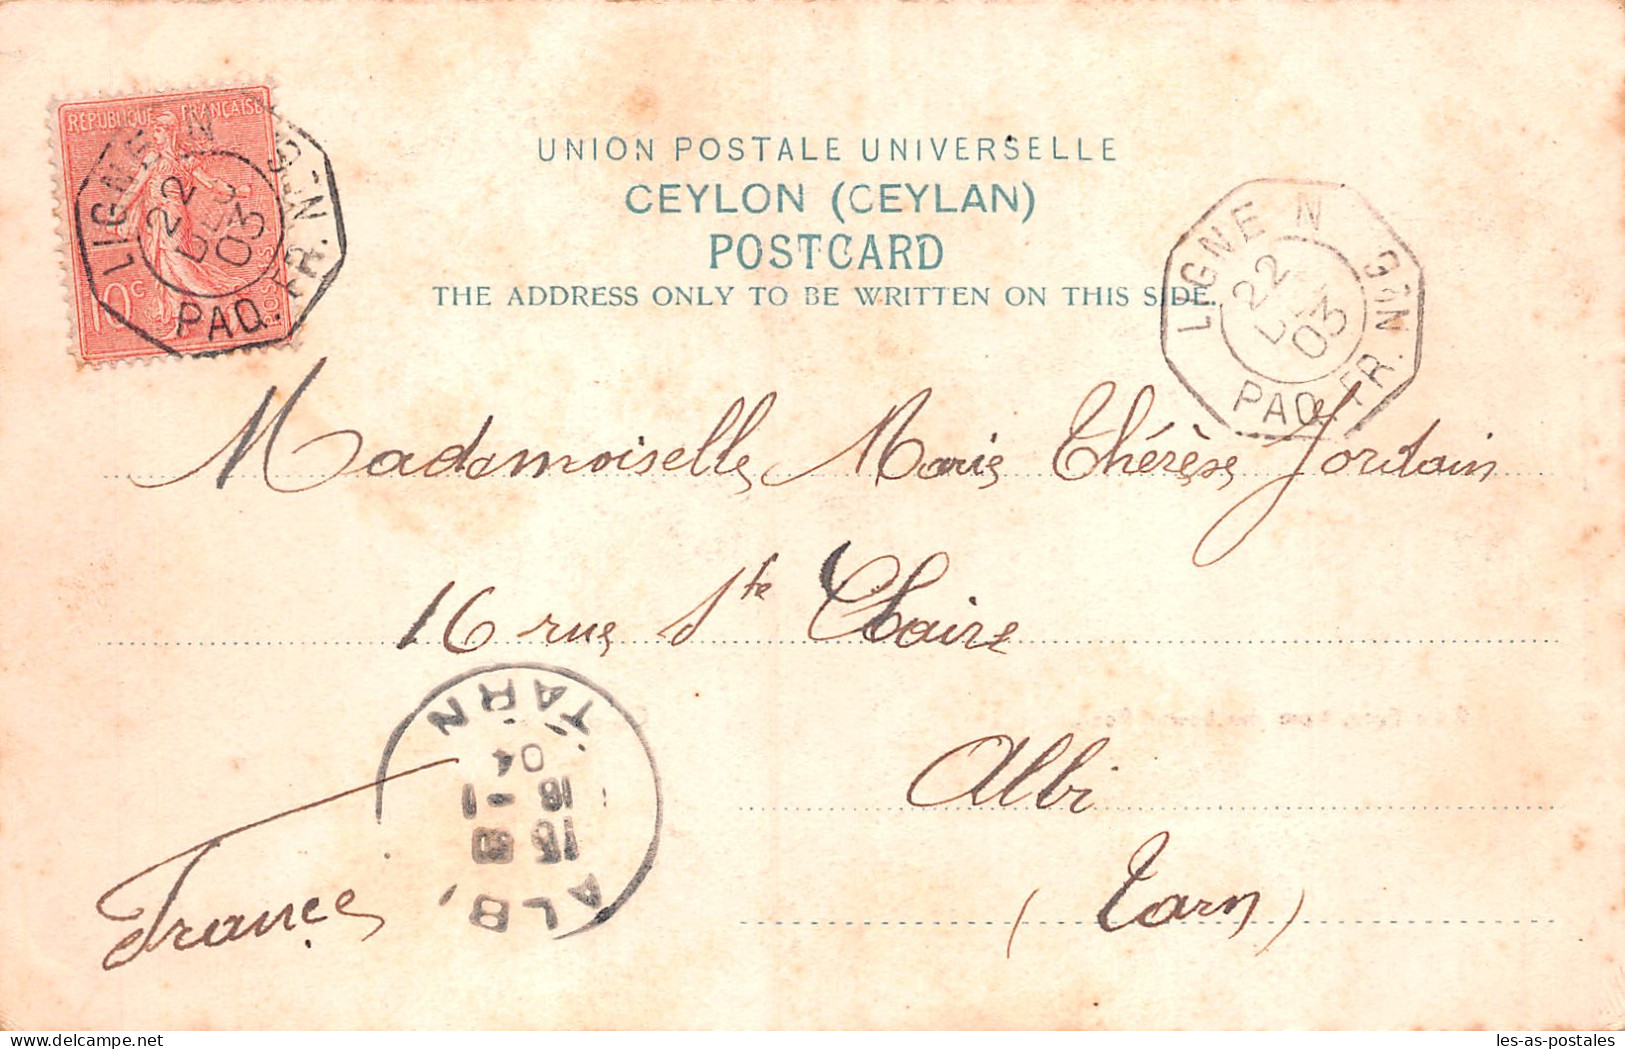 RÉPUBLIQUE FRANÇAISE
10c
LIGNE N
PAQ. FR.
22
DEC
03
UNION POSTALE UNIVERSELLE
CEYLON (CEYLAN)
POSTCARD
THE ADDRESS ONLY TO BE WRITTEN ON THIS SIDE.
LIGNE N
PAQ. FR.
22
03
Mademoiselle Marie Thérèse Jordain
16 rue Ste Claire
Albi
(Tarn)
France
TARN
04
les-as-postales